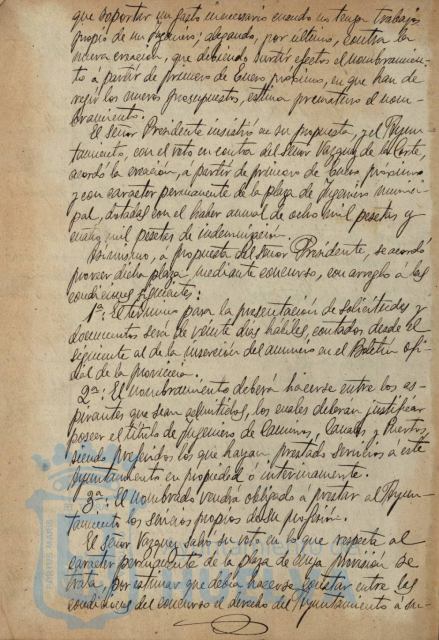 que soportar un gasto innecesario cuando no tenga trabajos
propio de un Ingeniero, alegando, por ultimo, contra la
nueva creación, que debiendo surtir efectos el nombramien-
to á partir de primero de Enero próximo, en que han de
regir los nuevos presupuestos, estima prematuro el nom-
bramiento.
El Señor Presidente insistió en su propuesta, y el Ayun-
tamiento, con el voto en contra del Señor Vazquez de la Corte,
acordó la creación, á partir de primero de Enero próximo
y con caracter permanente de la plaza de Ingeniero munici-
pal, dotada con el haber anual de ocho mil pesetas y
cuatro mil pesetas de indemnización.
Asimismo, a propuesta del Señor Presidente, se acordó
proveer dicha plaza mediante concurso, con arreglo a las
condiciones siguientes:
1ª: El termino para la presentación de solicitudes y
documentos será de veinte dias hábiles, contados desde el
siguiente al de la inserción del anuncio en el Boletin ofi-
cial de la provincia.
2ª: El nombramiento deberá hacerse entre los as-
pirantes que sean admitidos, los cuales deberan justificar
poseer el titulo de Ingeniero de Caminos, Canales y Puertos,
siendo preferidos los que hayan prestado servicios a este
Ayuntamiento en propiedad ó interinamente.
3ª: El nombrado vendrá obligado a prestar al Ayun-
tamiento los servicios propios de su profesión.
El Señor Vazquez salvó su voto en lo que respecta al
caracter permanente de la plaza de cuya provisión se
trata, por estimar que debia hacerse constar entre las
condiciones del concurso el derecho del Ayuntamiento á su-